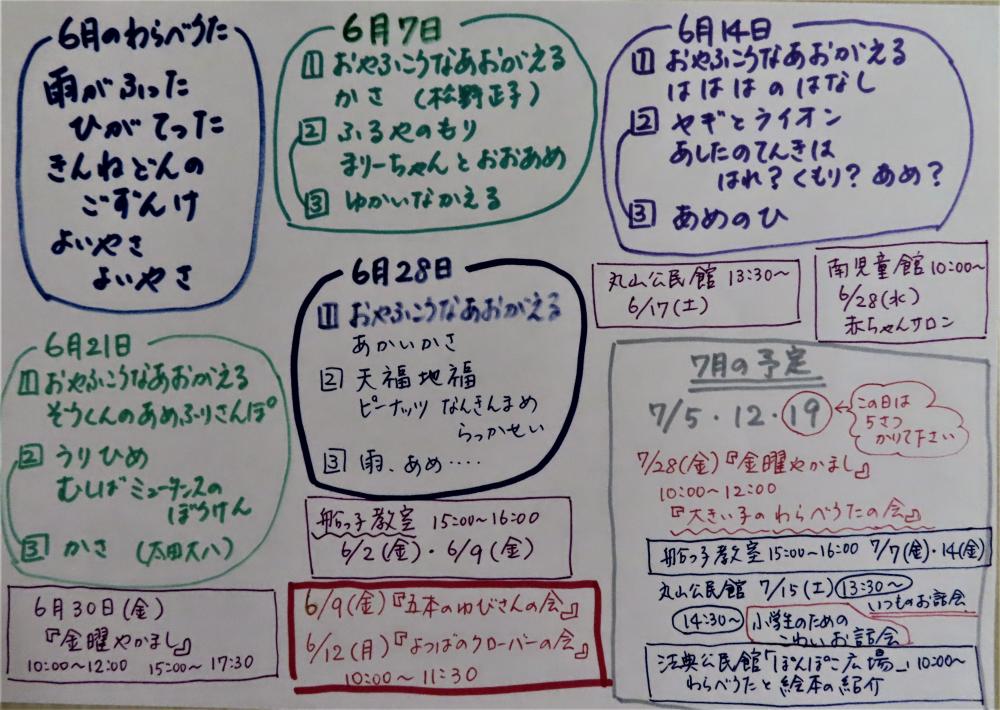 6月のわらべうた
雨がふった
ひがてった
きんねどんの
ごずんけ
よいやさ
よいやさ
6月7日
① おやふこうなあおがえる
かさ （松野正子）
② ふるやのもり
まりーちゃんとおおあめ
③ ゆかいなかえる
6月14日
① おやふこうなあおがえる
はははのはなし
② やぎとライオン
あしたのてんきは
はれ？くもり？あめ？
③ あめのひ
丸山公民館 13:30～
6/17(土)
南児童館 10:00～
6/28(水)
赤ちゃんサロン
6月21日
① おやふこうなあおがえる
ぞうくんのあめふりさんぽ
② うりひめ
むしばミュータンスの
ぼうけん
③ かさ （太田大八）
6月28日
① おやふこうなあおがえる
あかいかさ
② 天福地福
ピーナッツ なんきんまめ
らっかせい
③ 雨、あめ‥‥
船っ子教室 15:00～16:00
6/2(金)・6/9(金)
6月30日(金)
『金曜やかまし』
10:00～12:00 15:00～17:30
6/9(金)『五本のゆびさんの会』
6/12(月)『よつばのクローバーの会』
10:00～11:30
7月の予定
7/5・12・19
この日は
5さつ
かりて下さい
7/28(金)『金曜やかまし』
10:00～12:00
『大きい子のわらべうたの会』
船っ子教室 15:00～16:00 7/7(金)・14(金)
丸山公民館 7/15(土) 13:30～
いつものお話会
14:30～ 小学生のための
こわいお話会
法典公民館「ぽんぽこ広場」10:00～
わらべうたと絵本の紹介